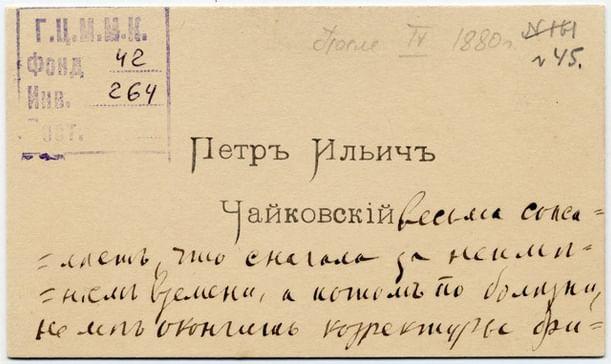 Г.Ц.М.М.К.
Фонд 42
Инв. 264
Пост.
После IV 1880 г.
№ 161
№ 45.
Петръ Ильичъ
Чайковскій весьма сожа=
=лѣетъ, что сначала за неимѣ=
=ніемъ времени, а потомъ по болѣзни,
не могъ окончить корректуры фи=